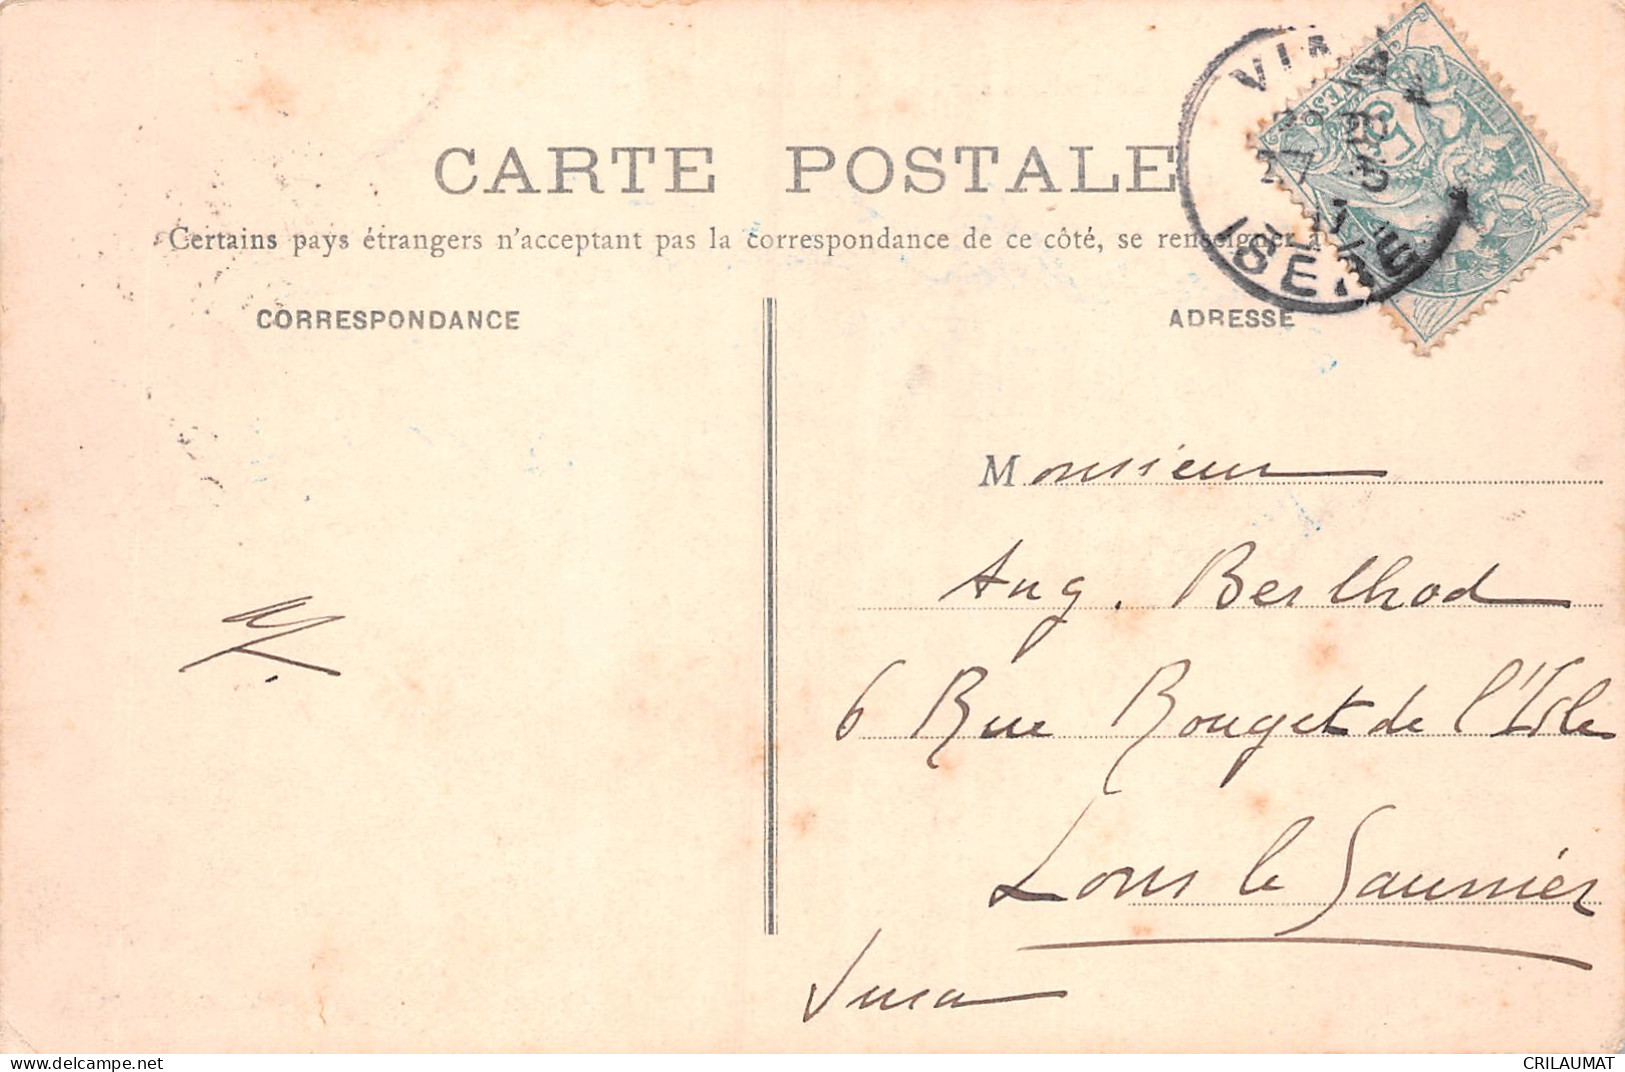 CARTE POSTALE
Certains pays étrangers n'acceptant pas la correspondance de ce côté, se renseigner à
CORRESPONDANCE
ADRESSE
ISÈRE
Monsieur
Aug. Berthod
6 Rue Rouget de l'Isle
Lons le Saunier
Jura
delcampe.net
CRILAUMAT